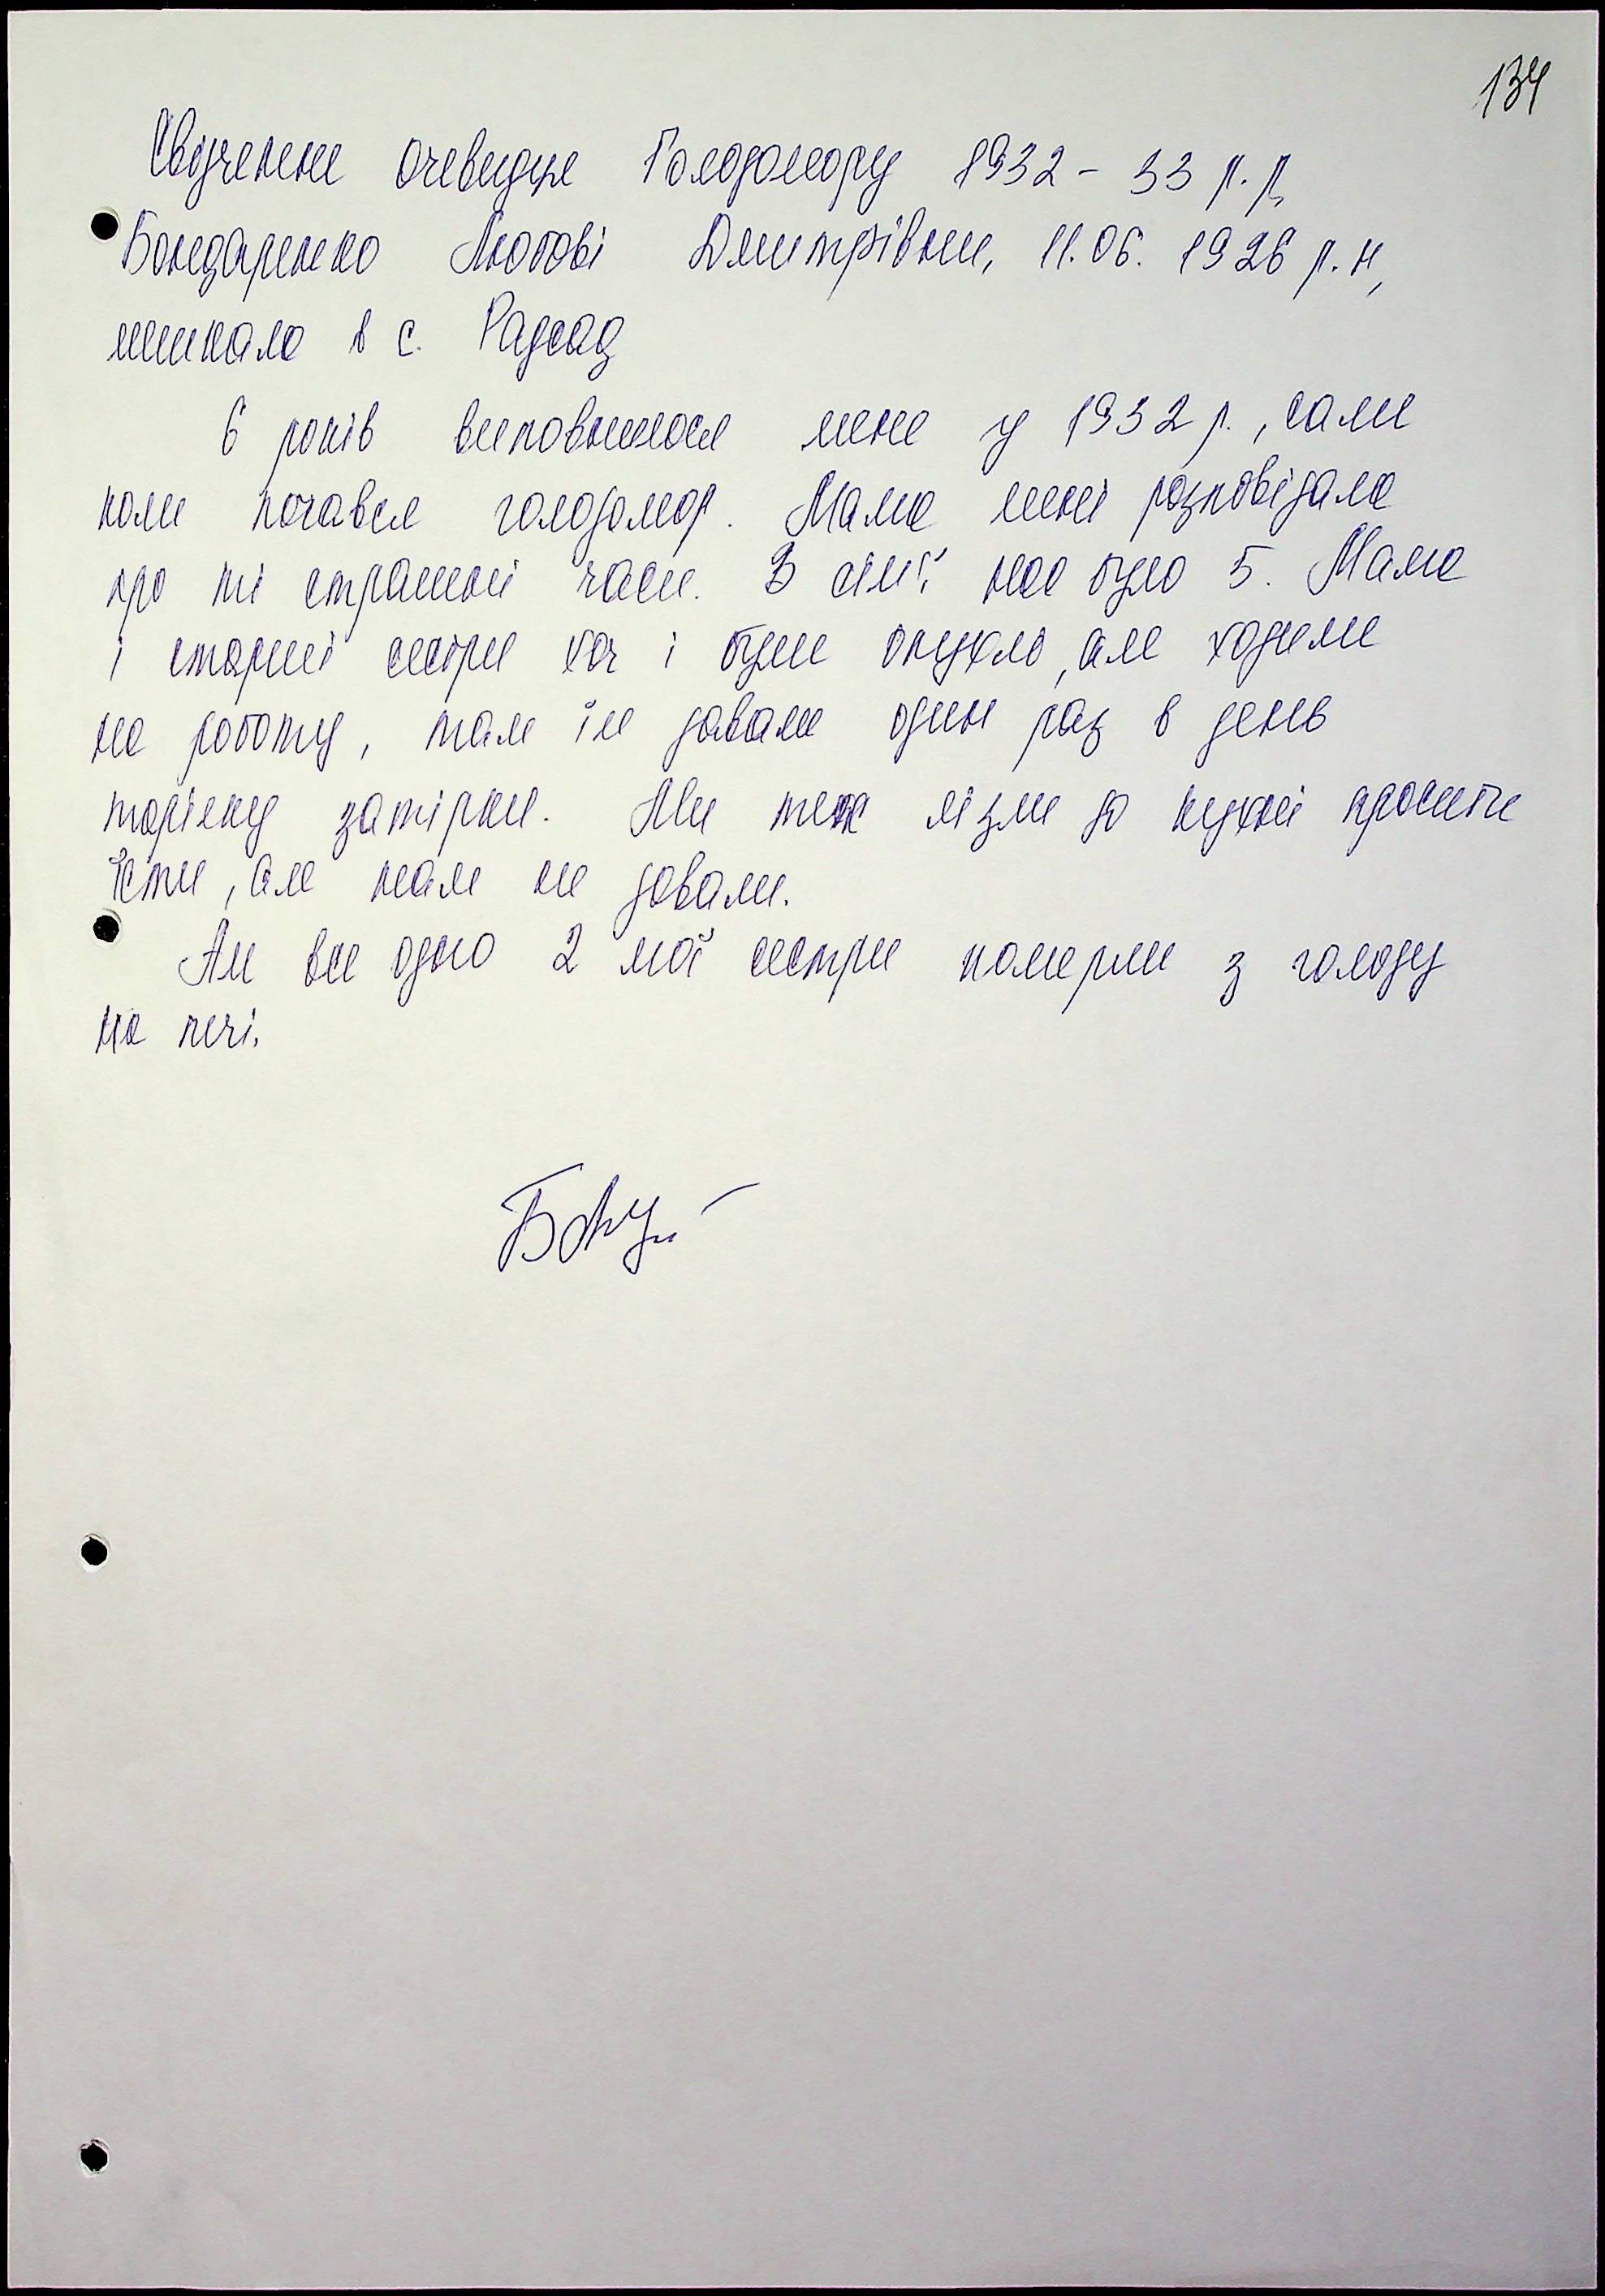 134
Свідчення очевидця Голодомору 1932 - 33 р.р,
Бондаренко Любові Дмитрівни, 11.06. 1926 р.н,
мешкала в с. Радсад
6 років виповнилося мене у 1932 р., саме
коли почався голодомор. Мама мені розповідала
про ті страшні часи. В сім'ї нас було 5. Мама
і старші сестри хоч і були опухлі, але ходили
на роботу, там їм давали один раз в день
тарілку затірки. Ми теж лізли до кухні просити
їсти, але нам не давали.
Але все одно 2 мої сестри померли з голоду
на печі.